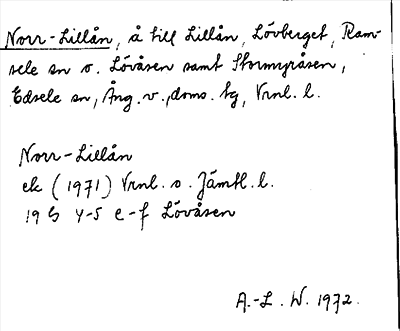 Norr-Lillån, å till Lillån, Lövberget, Ram-
sele sn o. Lövåsen samt Stormyråsen,
Edsele sn, Ång. v., doms. tg, Vrnl. l.
Norr-Lillån
ek (1971) Vrnl. o. Jämtl. l.
19 G 4-5 e-f Lövåsen
A.-L. W. 1972.